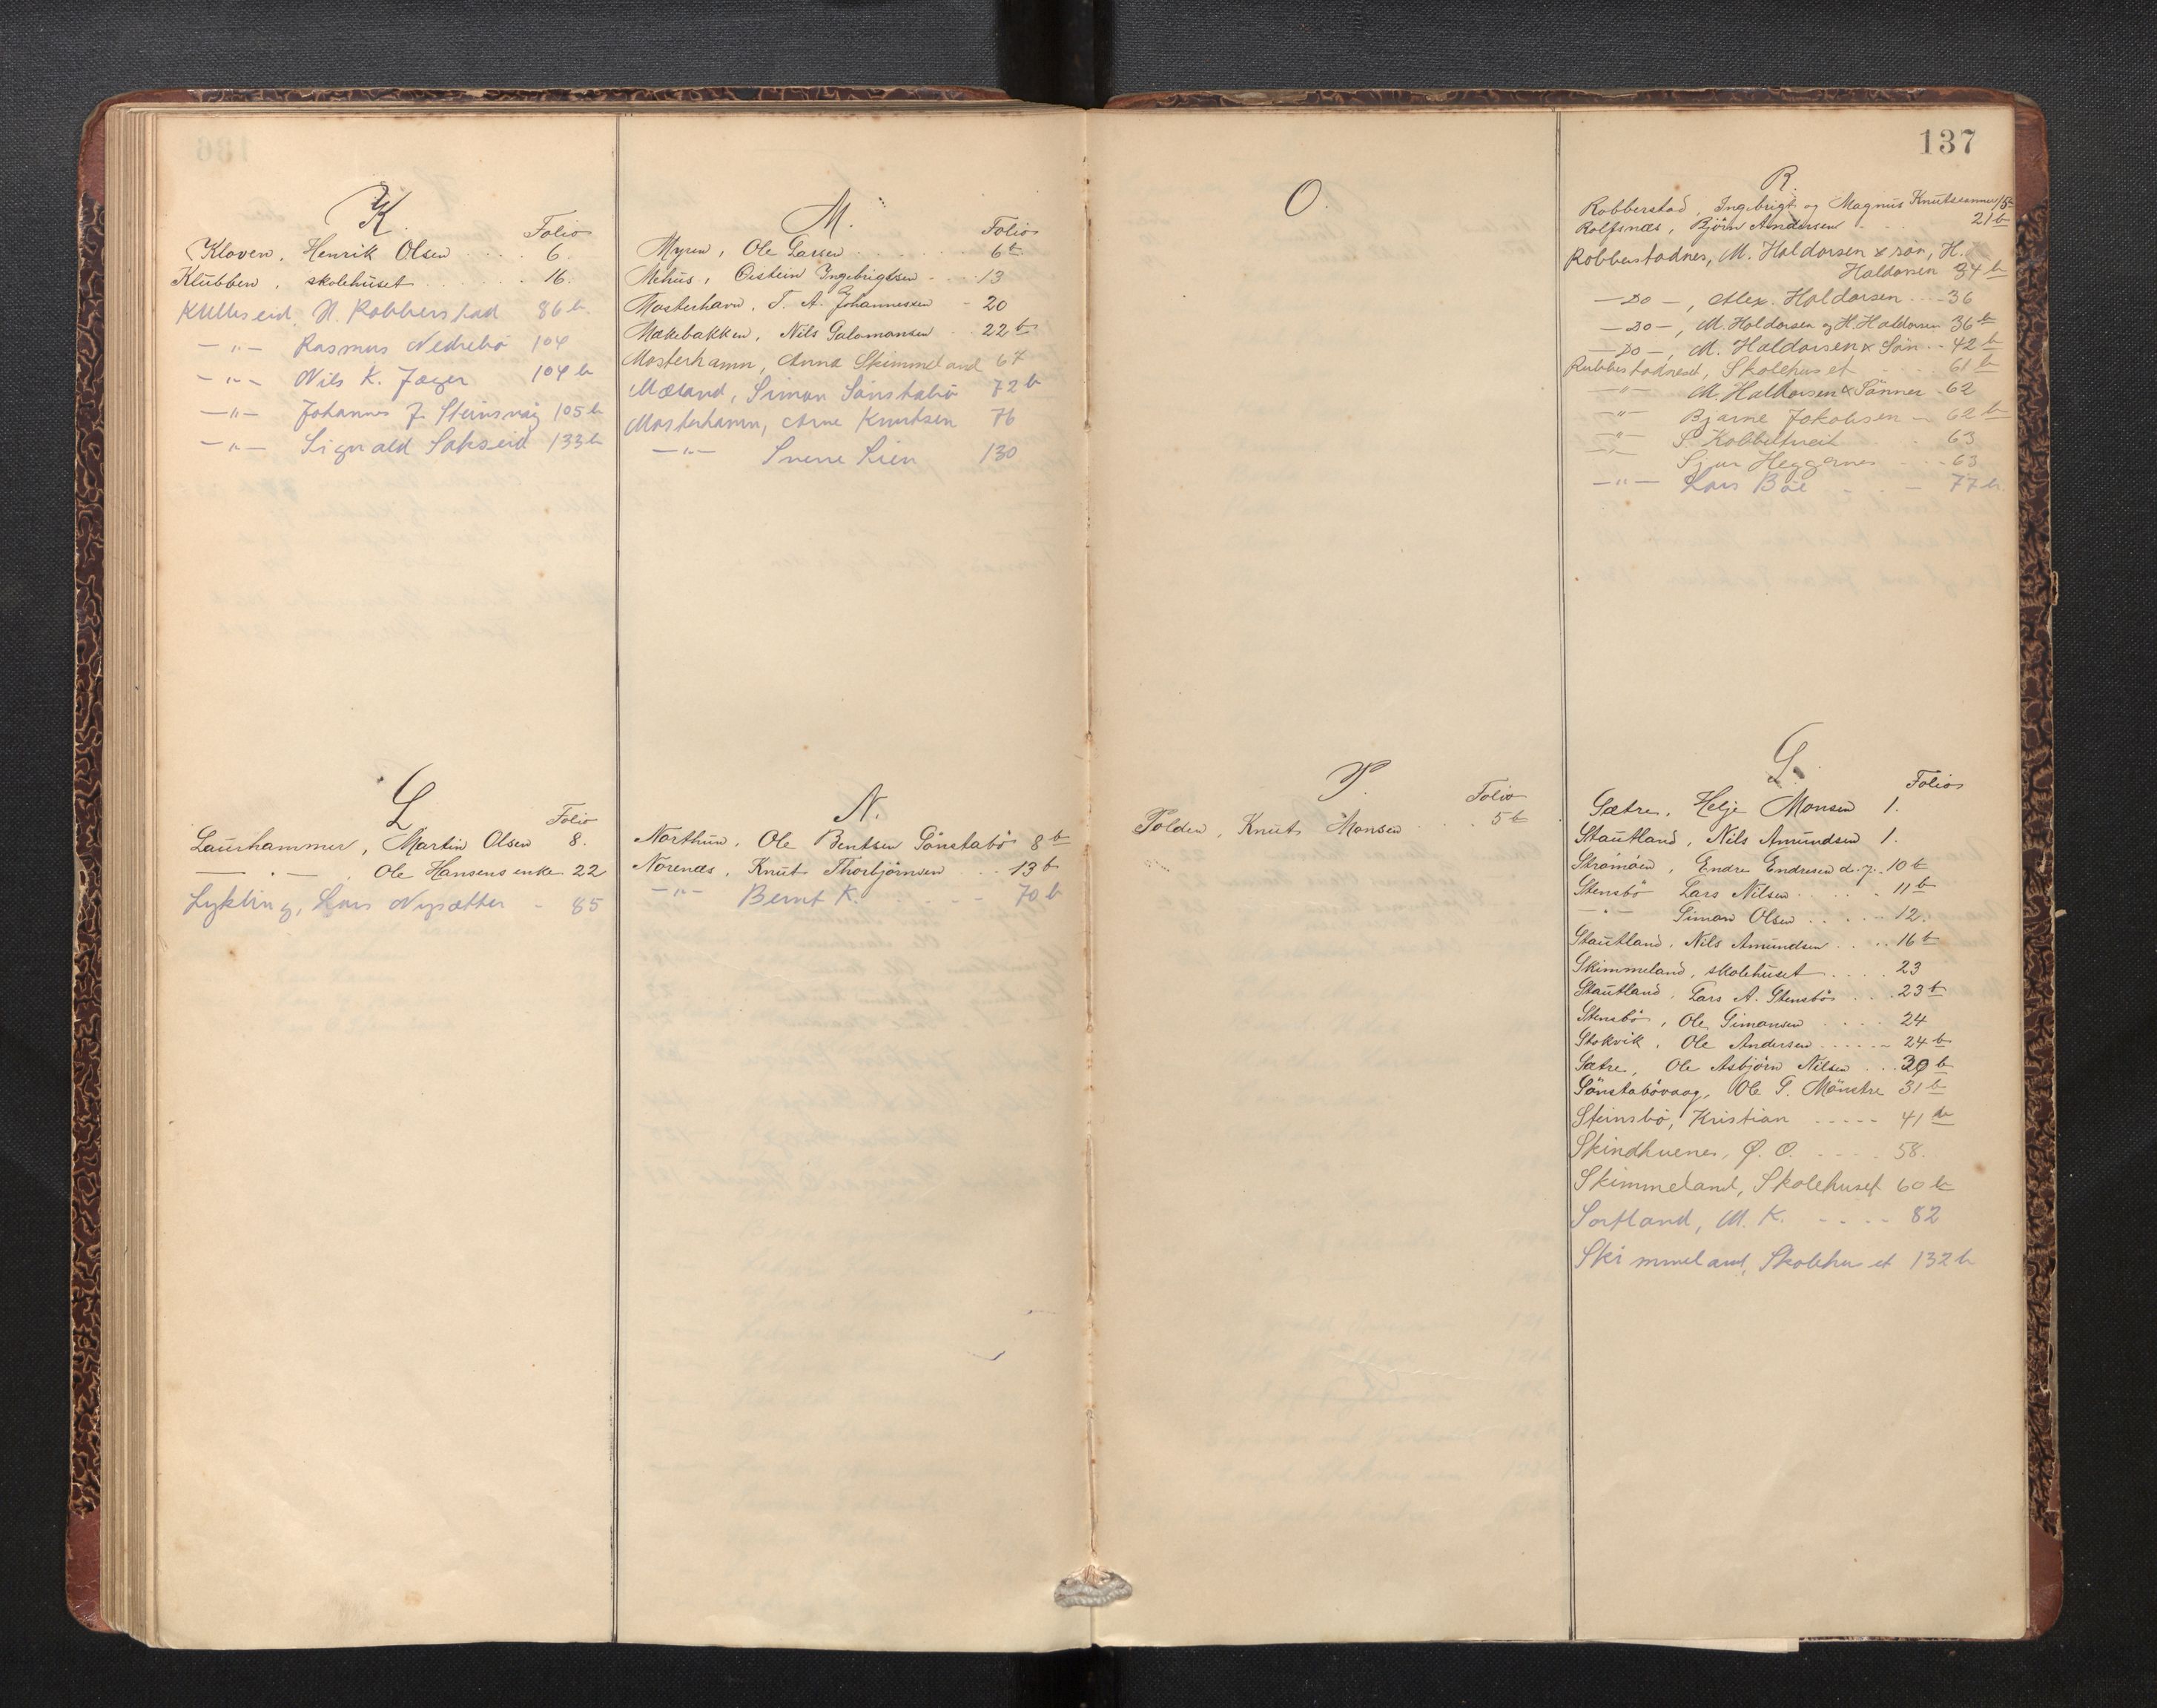 K.
Folio
Kloven, Henrik Olsen 6.
Klübben, skolehüset 16.
Kulleseid, N. Robberstad 86 b.
— " — Rasmus Nedrebö 104
— " — Nils K. Jæger 104 b
— " — Johannes J. Steinsvåg 105 b
— " — Signald Sakseid 133 b
L
Folio
Laurhammer, Martin Olsen 8.
— " — , Ole Hansens enke 22
Lykling, Lars Nysætter - 85
M.
Folio
Myren, Ole Larsen 6 b
Mehüs, Oistein Ingebrigtsen 13
Mosterhavn, T. A. Johannesen - 20
Mækebakken, Nils Salomonsen 22 b
Mosterhamn, Anna Skimmeland 67
Mæland, Simon Sönstabö 72 b
Mosterhamn, Arne Knutsen 76
— " — Sverre Lien 130
N.
Northün, Ole Bentsen Sönstabö 8 b
Nörenæs, Knut Thorbjörnsen 13 b
— " — Bernt K. 70 b
O.
P.
Folio
Polden, Knut Monsen 5 b
137
R.
Robberstad, Ingebrigt og Magnus Knutssønner 15
Rolfsnæs, Björn Andersen 21 b
Robberstadnes, M. Haldorsen & søn, H.
Haldorsen 34 b
— Do — , Alex. Haldorsen 36
— Do — , M. Haldorsen og H. Haldorsen 36 b
— Do — , M. Haldorsen & Sön 42 b
Rubbestadneset, Skolehuset 61 b
— " — M. Haldorsen & Sönner 62
— " — Bjarne Jakobsen 62 b
— " — S. Kobbeltveit 63
— " — Sjur Heggernes 63
— " — Lars Böe 77 b.
S.
Folio
Sætre, Helje Monsen 1.
Stautland, Nils Amundsen 1.
Strømøen, Endre Endresen d. y. 10 b
Stensbö Lars Nilsen 11 b
— " — Simon Olsen 12.
Stautland, Nils Amundsen 16 b
Skimmeland, skolehüset 23
Stautland, Lars A. Stensbö 23 b
Stensbö, Ole Simonsen 24
Stokvik, Ole Andersen 24 b
Sætre, Ole Asbjörn Nilsen 30 b
Sönstabövaag, Ole T. Mönstre 31 b
Steinsbö, Kristian 41 b
Skindhuenes, Ø. O. 58.
Skimmeland, Skolehuset 60 b
Sortland, M. K. 82
Skimmeland, Skolehuset 132 b